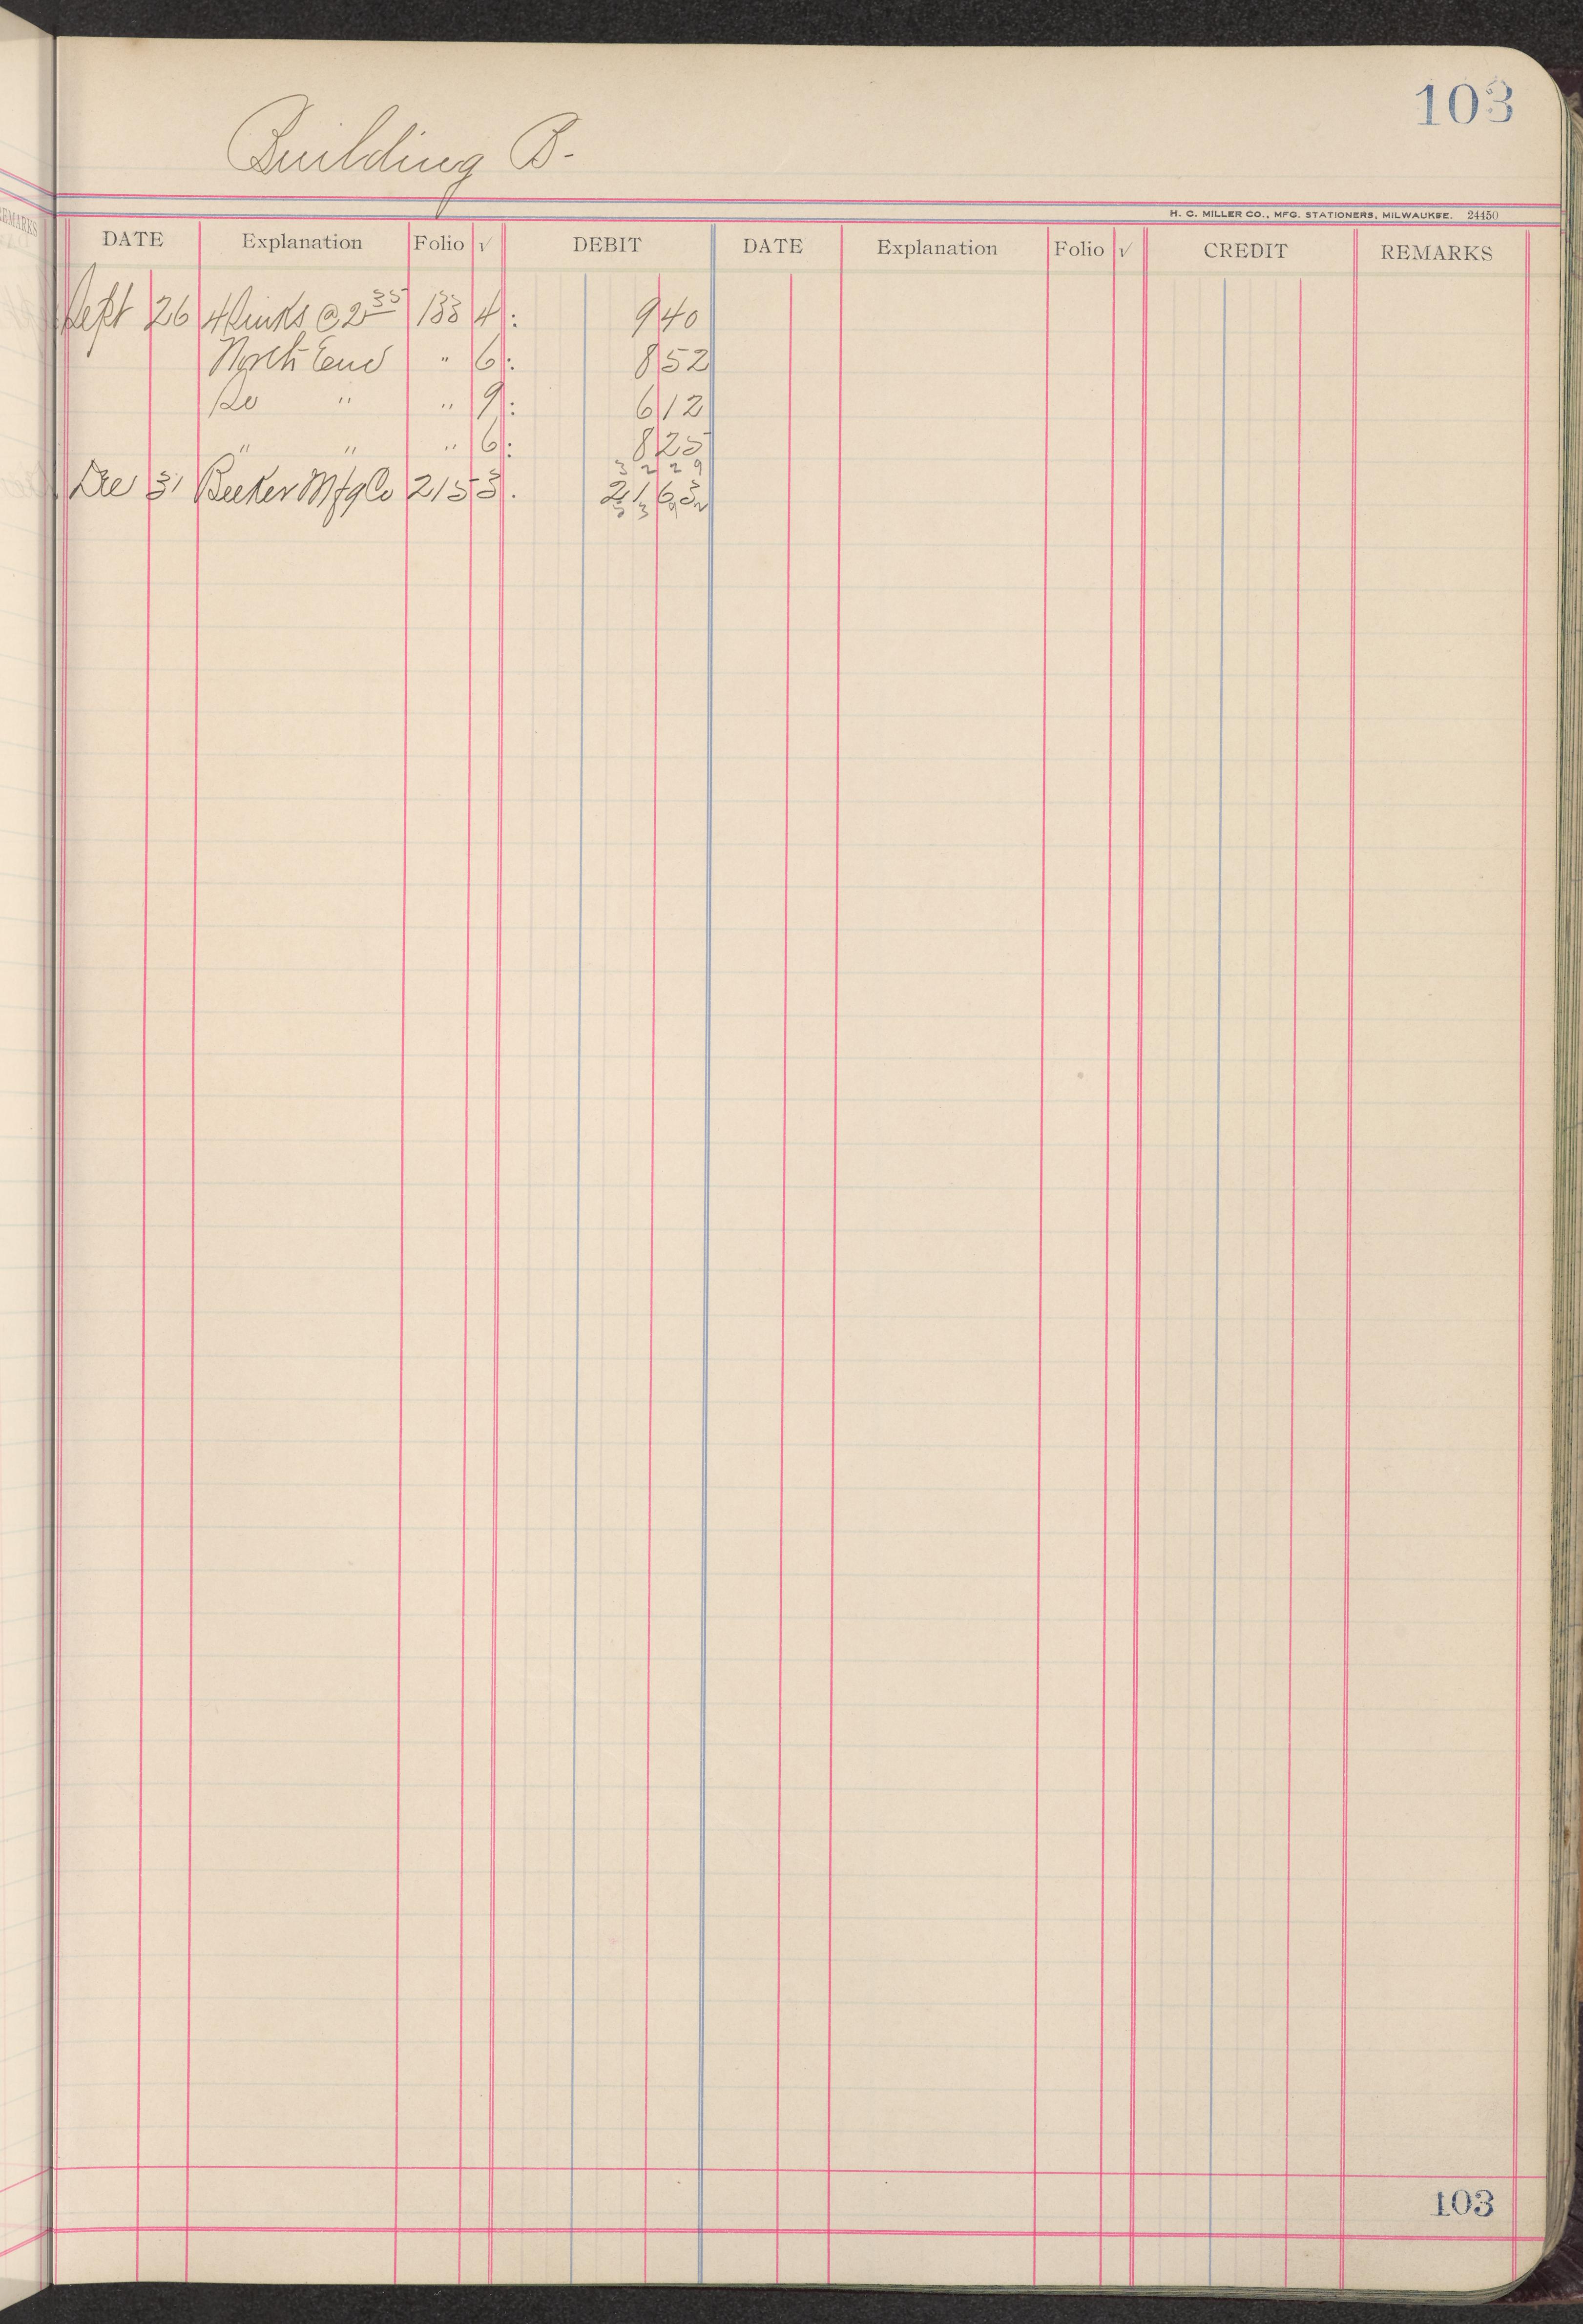 103
Building B-
H. C. MILLER CO., MFG. STATIONERS, MILWAUKEE. 24450
REMARKS
DATE Explanation Folio √ DEBIT DATE Explanation Folio √ CREDIT REMARKS
Sept 26 4 Sinks @ 2 35 133 4: 9 40
North End " 6: 8 52
So " " 9: 6 12
" " " 6: 8 25
32 29
Dec 31 Becker Mfg Co 215 3. 21 63
53 92
103